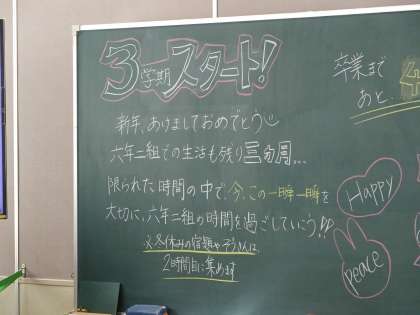 3学期スタート!
新年、あけましておめでとう
六年二組での生活も残り三カ月...
限られた時間の中で、今、この一瞬一瞬を
大切に、六年二組の時間を過ごしていこう!!
※冬休みの宿題やぞうきんは
2時間目に集めます
卒業まで
あと、
Happy
peace